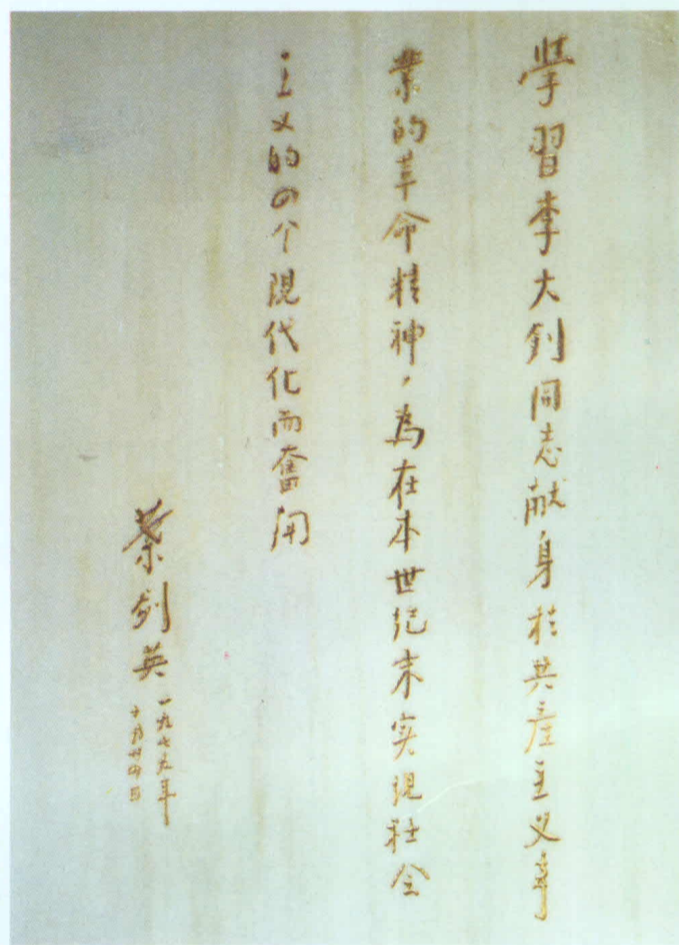 學習李大釗同志献身於共産主义事
業的革命精神，為在本世纪末实現社会
主义的四个現代化而奮鬥
葉剑英
一九七九年
十月廿四日